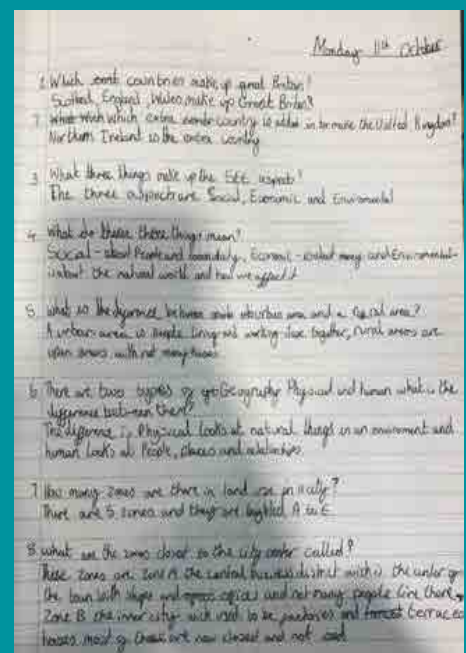 Monday 11th October
1. Which countries make up great Britan?
Scotland, England, Wales make up Great Britan
2. which extra country is added in to make the United Kingdom?
Northern Ireland is the extra country
3. What three things make up the SEE aspects?
The three aspects are Social, Economic and Enviromental
4. What do these three things mean?
Social - about People and , Economic - about money and Enviromental -
is about the natural world and how we affect it
5. what is the difference between urban area and a rural area?
A urban area is people living and working close together, rural areas are
open areas with not many houses
6. There are two types of Geography Physical and human what is the
difference between them?
The difference is Physical looks at natural things in an environment and
human looks at People, places and relationships
7. How many zones are there in land use in a city?
There are 5 zones and they are labled A to E
8. what are the zones closer to the city center called?
These zones are zone A the central business district wich is the center of
the town with shops and offices and not many people live there,
Zone B the inner city wich used to be factories and terraced
houses most of these are now closed and not used